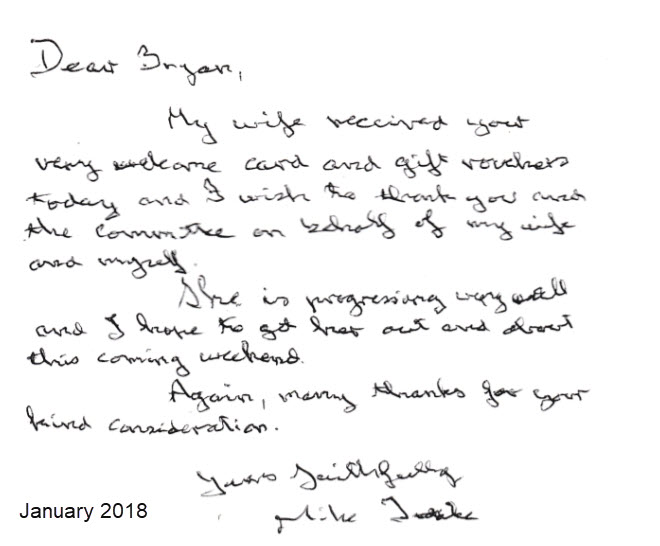 Dear Bryan,
My wife received your
very welcome card and gift vouchers
today and I wish to thank you and
the Committee on behalf of my wife
and myself.
She is progressing very well
and I hope to get her out and about
this coming weekend.
Again, many thanks for your
kind consideration.
Yours faithfully
Mike
January 2018